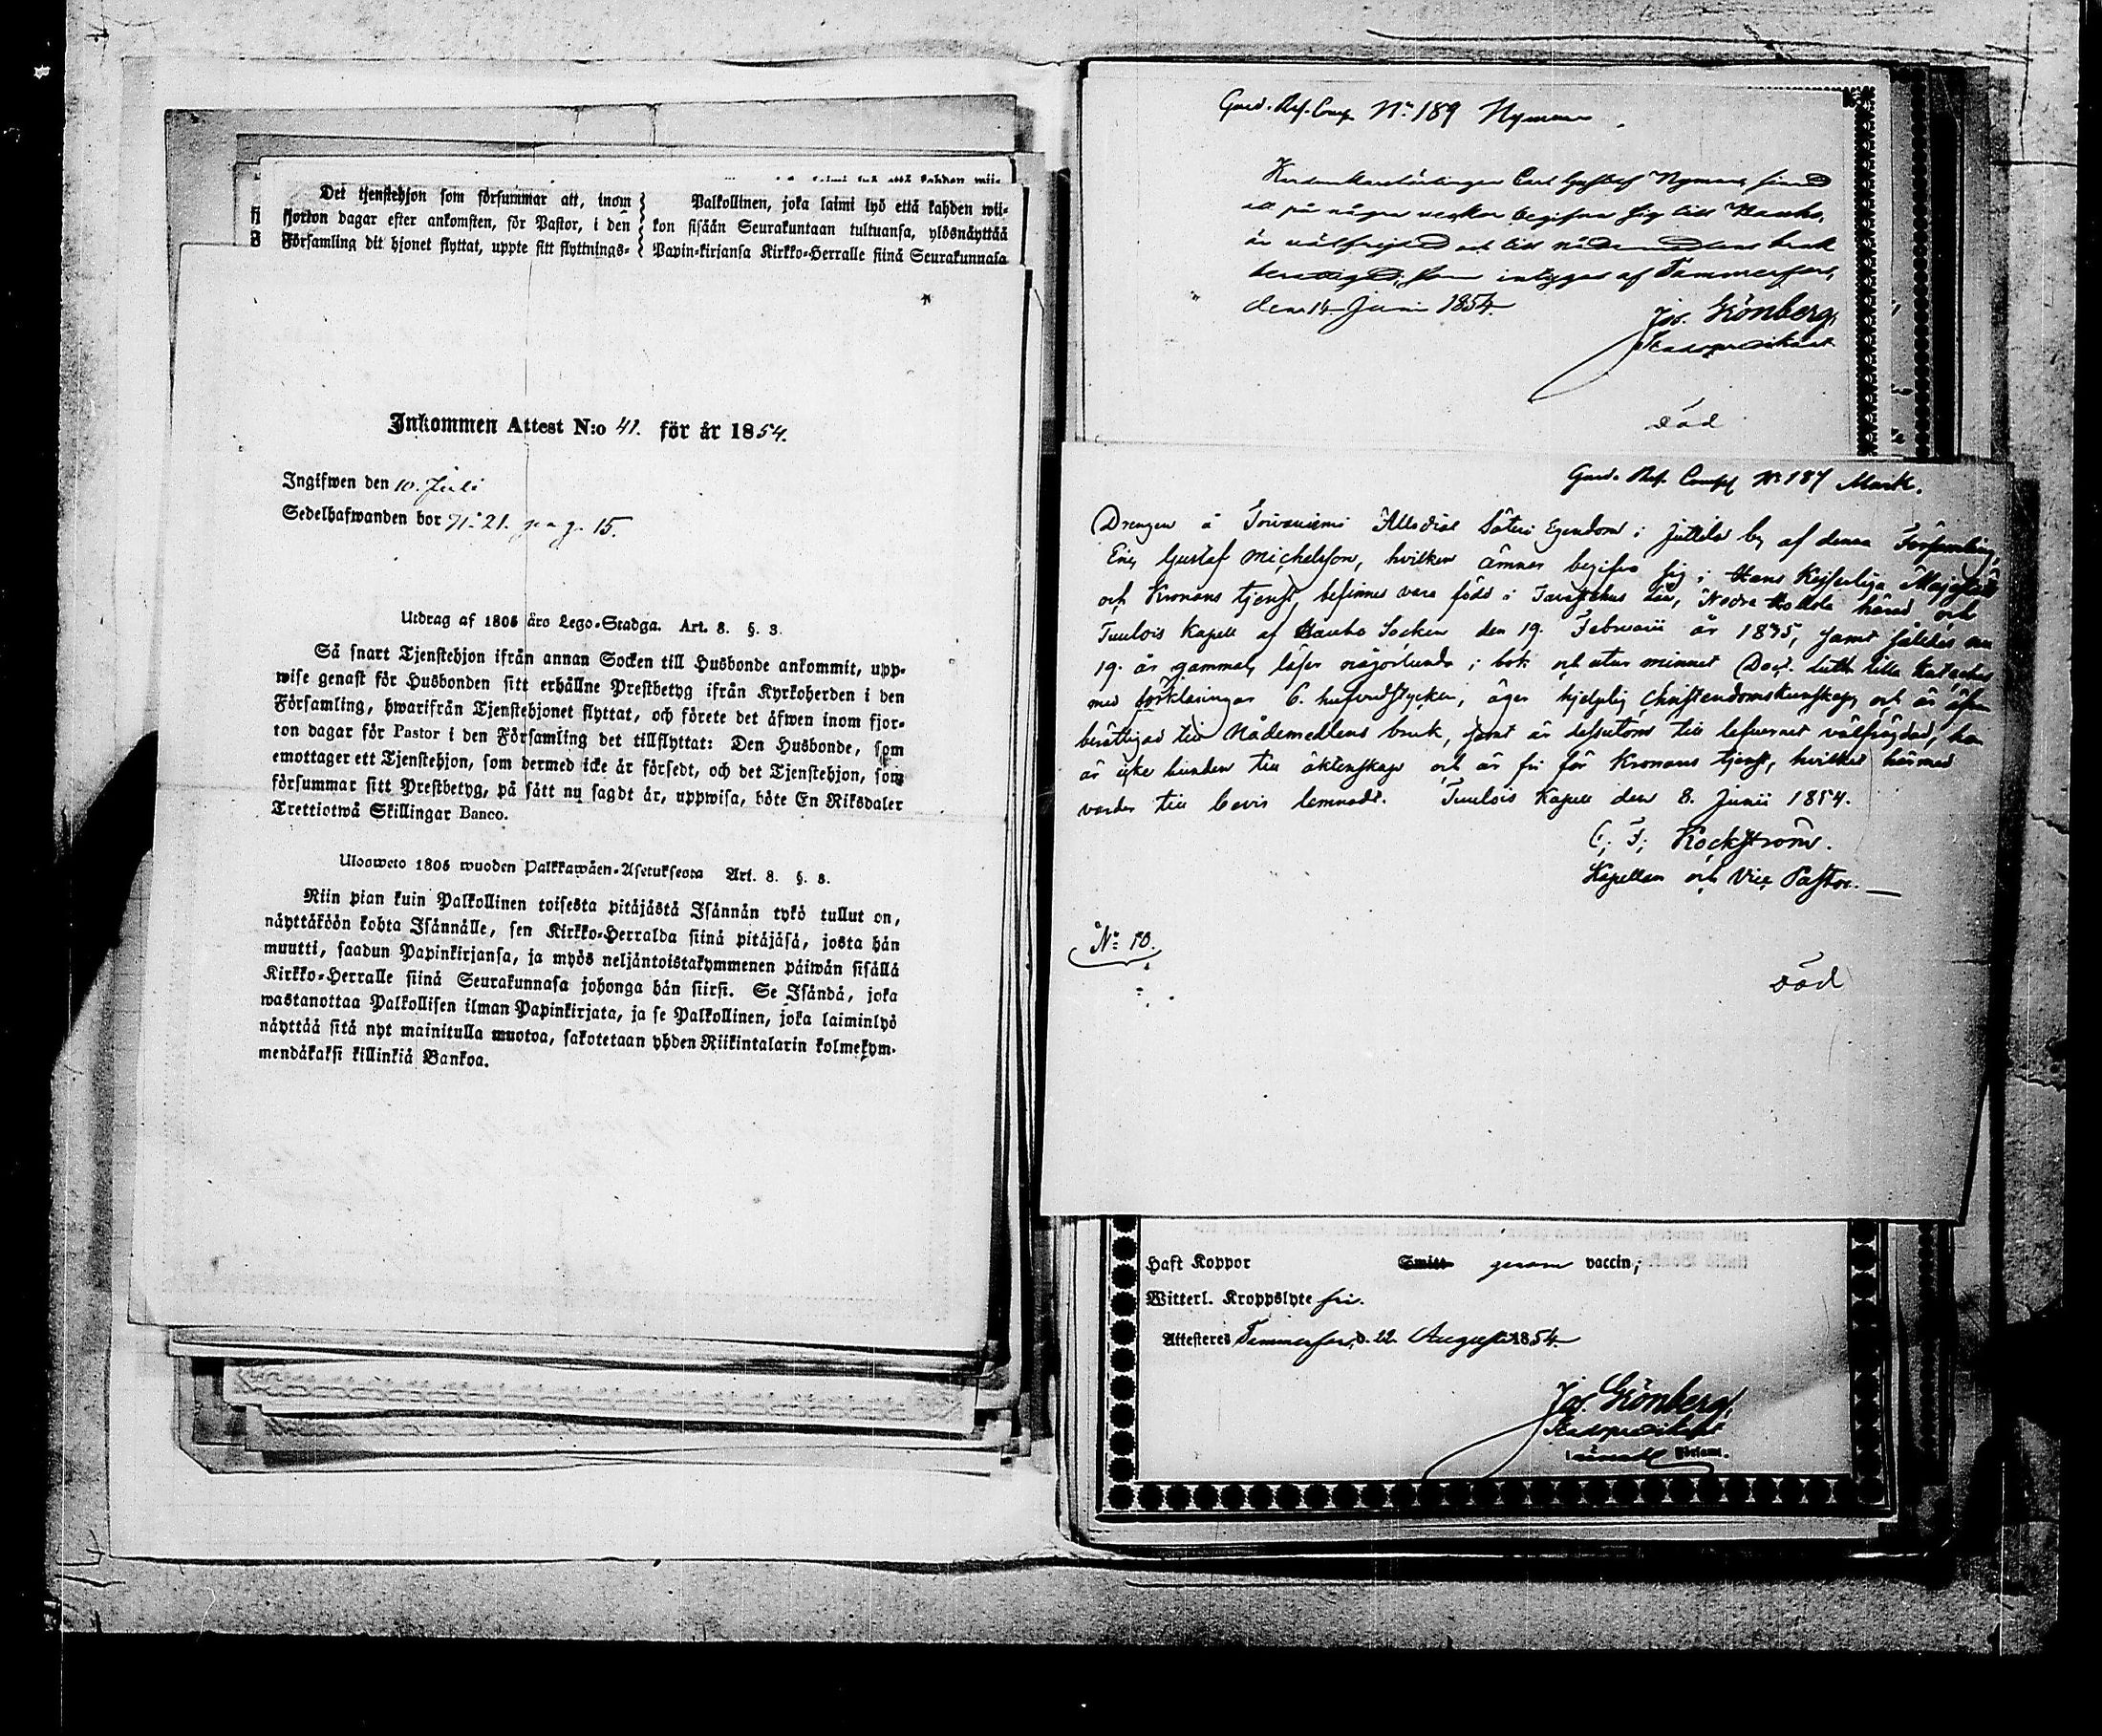 Det tjenstehjon som försummar att, inom
fjorton dagar efter ankomsten, för Pastor, i den
Församling dit hjonet flyttat, uppte sitt flyttnings-
Palkollinen, joka laimi lyö että kahden wii-
kon sisään Seurakuntaan tultuansa, ylösnäyttää
Papin-kirjansa Kirkko-Herralle siinä Seurakunnasa
Inkommen Attest N:o 41. för år 1854.
Ingifwen den 10. Juli
Sedelhafwanden bor N:o 21. pag. 15.
Utdrag af 1805 års Lego-Stadga. Art. 8. §. 3.
Så snart Tjenstehjon ifrån annan Socken till Husbonde ankommit, upp-
wise genast för Husbonden sitt erhållne Prestbetyg ifrån Kyrkoherden i den
Församling, hwarifrån Tjenstehjonet flyttat, och förete det äfwen inom fjor-
ton dagar för Pastor i den Församling det tillflyttat: Den Husbonde, som
emottager ett Tjenstehjon, som dermed icke är försedt, och det Tjenstehjon, som
försummar sitt Prestbetyg, på sätt nu sagdt är, uppwisa, böte En Riksdaler
Trettiotwå Skillingar Banco.
Ulosweto 1805 wuoden Palkkawäen-Asetuksesta Art. 8. §. 3.
Niin pian kuin Palkollinen toisesta pitäjästä Isännän tykö tullut on,
näyttäköön kohta Isännälle, sen Kirkko-Herralda siinä pitäjäsä, josta hän
muutti, saadun Papinkirjansa, ja myös neljäntoistakymmenen päiwän sisällä
Kirkko-Herralle siinä Seurakunnasa johonga hän siirsi. Se Isändä, joka
wastanottaa Palkollisen ilman Papinkirjata, ja se Palkollinen, joka laiminlyö
näyttää sitä nyt mainitulla muotoa, sakotetaan yhden Riikintalarin kolmekym-
mendäkaksi killinkiä Bankoa.
Gard. Res. Comp. N:o 189 Nyman
Carl Gustaf Nyman,
att på några veckor begifva sig till Hauho,
är välfrejdad och till nådemedlens bruk
berättigad; som intygas af Tammerfors,
den 14 Juni 1854.
Jos. Grönberg,
Stadspredikant
Död
Gard. Res. Comp. N:o 187 Mark.
Drengen å Toivaniemi Allodial Säteri Egendom i Juttila by af denna Församling,
Eric Gustaf Michelsson, hvilken ämnar begifva sig i Hans Kejserliga Majestäts
och Kronans tjenst, befinnes vara född i Tavastehus län, Nedre Hollola härad och
Tuulois Kapell af Hauho Socken den 19. Februarii år 1835, samt således nu
19. år gammal, läser någorlunda i bok och utur minnet Doct. Luth. lilla Kateches
med förklaringar 6. hufvudstycken, äger hjelplig Christendomskunskap, och är äfven
berättigad till Nådemedlens bruk, samt är dessutom till lefvernet välfrägdad, han
är icke bunden till äktenskap och är fri för Kronans tjenst, hvilket härmed
varder till bevis lemnadt. Tuulois Kapell den 8. Junii 1854.
C. F. Rockström.
Kapellan och Vice Pastor.
N:o 10.
Död
Haft Koppor genom vaccin;
Witterl. Kroppslyte fri.
Attesteres Tammerfors, d. 22 Augusti 1854.
Jos. Grönberg,
Stadspredikant